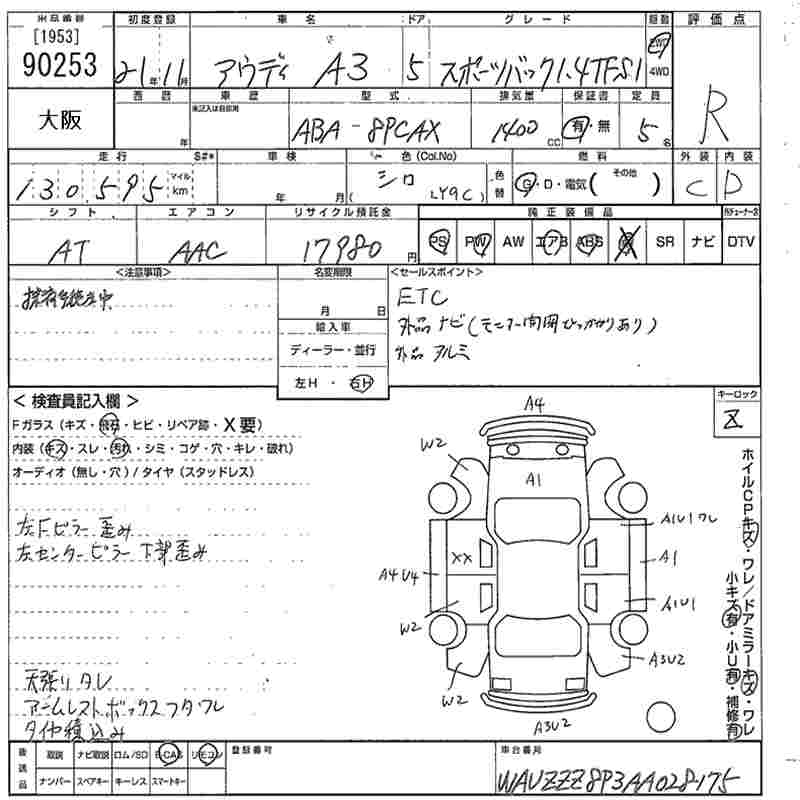 出品番号 初度登録 車名 ドア グレード 駆動 評価点
[1953]
90253 21年11月 アウディ A3 5 スポーツバック1.4TFSI 2WD 4WD R
大阪
西暦 車歴 型式 排気量 保証書 定員
※記入は自家用
年 ABA-8PCAX 1400cc 有・無 5名
走行 S#* 車検 色(Col.No) 燃料 外装 内装
130,595 マイル km 年 月 シロ (LY9C) 色替 G・D・電気( その他 ) C D
シフト エアコン リサイクル預託金 純正装備品
AT AAC 17980円 PS PW AW エアB ABS SR ナビ DTV
<注意事項> 名変期限 <セールスポイント>
月 日 ETC
輸入車 外品 ナビ(モニター開閉ひっかかりあり)
ディーラー・並行 外品 アルミ
左H・右H
<検査員記入欄> キーロック
Fガラス(キズ・飛石・ヒビ・リペア跡・X要)
Z
内装(キズ・スレ・汚れ・シミ・コゲ・穴・キレ・破れ)
オーディオ(無し・穴)/タイヤ(スタッドレス)
左Fピラー 歪み
左センターピラー 下部歪み
天張りタレ
アームレストボックスフタワレ
タイヤ積込み
A4
W2
A1
A1U1ワレ
XX
A1
A4U4
A1U1
W2
A3U2
W2
A3U2
ホイルCPキズ・ワレ/ドアミラーキズ・ワレ
小キズ有・小U有・補修有
後送品 取説 ナビ取説 ロム/SD B-CAS リモコン 登録番号 車台番号
ナンバー スペアキー キーレス スマートキー WAUZZZ8P3AA028175